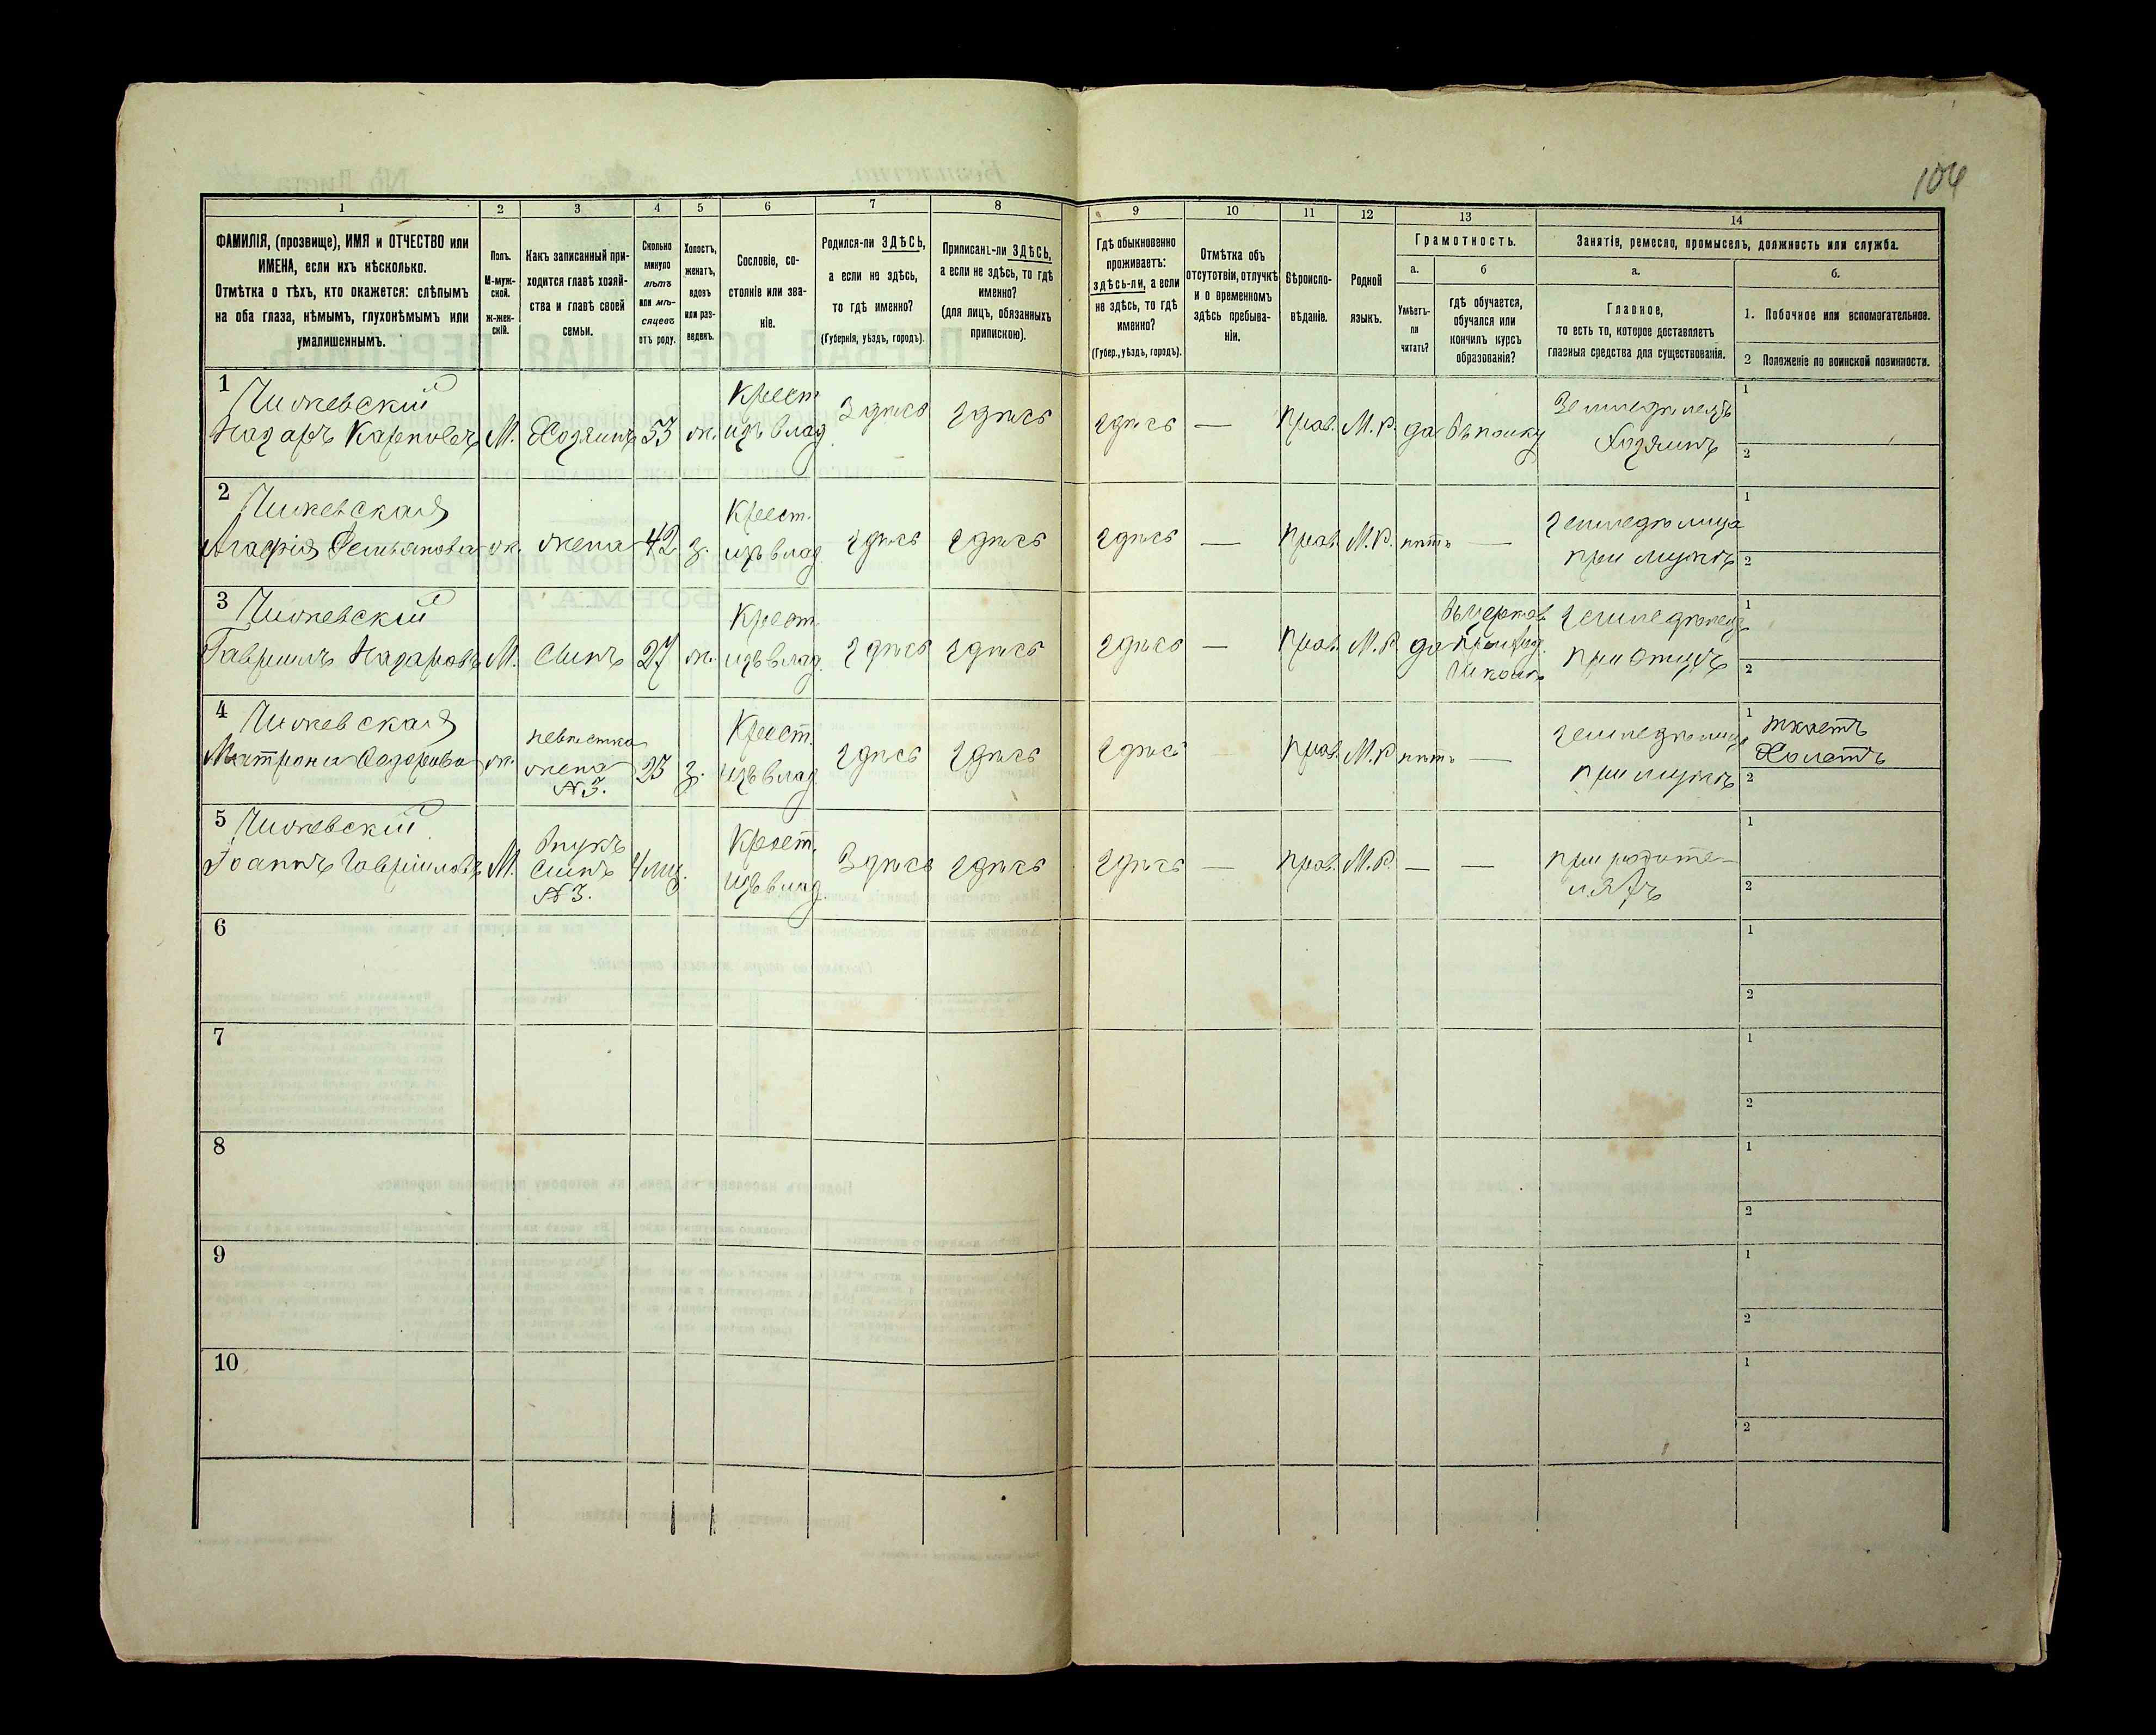 106
1 2 3 4 5 6 7 8 9 10 11 12 13 14
ФАМИЛІЯ, (прозвище), ИМЯ и ОТЧЕСТВО или
ИМЕНА, если ихъ нѣсколько.
Отмѣтка о тѣхъ, кто окажется: слѣпымъ
на оба глаза, нѣмымъ, глухонѣмымъ или
умалишеннымъ.
Полъ.
М-муж-
ской.
ж-жен-
скій.
Какъ записанный при-
ходится главѣ хозяй-
ства и главѣ своей
семьи.
Сколько
минуло
лѣтъ
или мѣ-
сяцевъ
отъ роду.
Холостъ,
женатъ,
вдовъ
или раз-
веденъ.
Сословіе, со-
стояніе или зва-
ніе.
Родился-ли ЗДѢСЬ,
а если не здѣсь,
то гдѣ именно?
(Губернія, уѣздъ, городъ).
Приписанъ-ли ЗДѢСЬ,
а если не здѣсь, то гдѣ
именно?
(для лицъ, обязанныхъ
припискою).
Гдѣ обыкновенно
проживаетъ:
здѣсь-ли, а если
не здѣсь, то гдѣ
именно?
(Губер., уѣздъ, городъ).
Отмѣтка объ
отсутствіи, отлучкѣ
и о временномъ
здѣсь пребыва-
ніи.
Вѣроиспо-
вѣданіе.
Родной
языкъ.
Грамотность.
а. б
Умѣетъ-
ли
читать?
гдѣ обучается,
обучался или
кончилъ курсъ
образованія?
Занятіе, ремесло, промыселъ, должность или служба.
а. б.
Главное,
то есть то, которое доставляетъ
главныя средства для существованія.
1. Побочное или вспомогательное.
2 Положеніе по воинской повинности.
1 Чижевскій Крест. Земледѣлецъ 1
Назаръ Карповъ М. Хозяинъ 53 ж. изъ влад. Здѣсь здѣсь здѣсь — прав. М.Р. да въ полку Хозяинъ 2
2 Чижевская Крест. земледѣлица 1
Агафія ж. жена 42 з. изъ влад. здѣсь здѣсь здѣсь — прав. М.Р. нѣтъ — при мужѣ 2
3 Чижевскій Крест. въ церков. земледѣлецъ 1
Гавріилъ Назаровъ М. сынъ 27 ж. изъ влад. здѣсь здѣсь здѣсь — прав. М.Р. да приход. при отцѣ 2
школѣ
4 Чижевская невѣстка Крест. земледѣлица 1 ткетъ
Матрона ж. жена 23 з. изъ влад. здѣсь здѣсь здѣсь — прав. М.Р. нѣтъ — при мужѣ 2
№ 3.
5 Чижевскій Внукъ Крест. 1
Іоаннъ Гавріиловъ М. сынъ 4 мц. изъ влад. Здѣсь здѣсь здѣсь — прав. М.Р. — — при родите- 2
№ 3. ляхъ
6 1
2
7 1
2
8 1
2
9 1
2
10 1
2